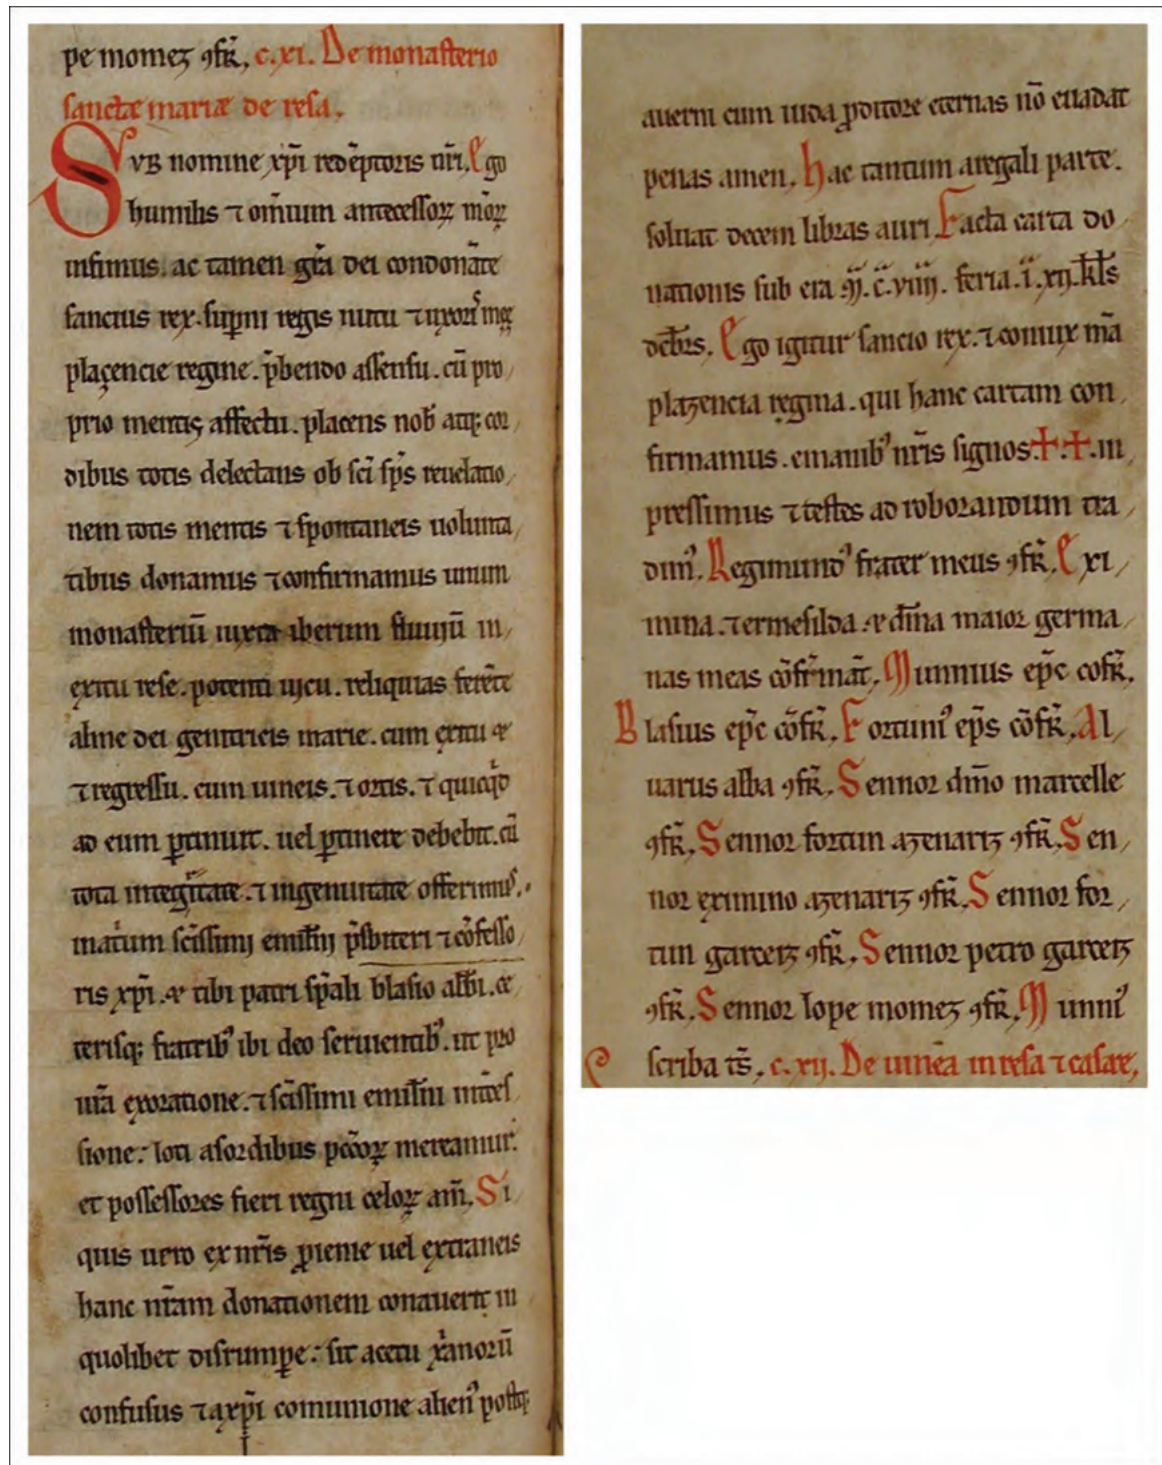 pe momez ꝯfr̄. c.xi. De monasterio
sanctæ mariæ de resa.
SVB nomine xp̄i redēptoris nr̄i. Ego
humilis ⁊ om̄ium antecessoꝝ meoꝝ
infimus. ac tamen gr̄a dei condonāte
sancius rex. suꝑni regis nutu ⁊ uxoris meę
plaçencie regine. p̄bendo assensu. cū pro
prio mentis affectu. placens nob̄ atq; cor
dibus totis delectans ob sc̄i sp̄s reuelatio
nem totis mentis ⁊ spontaneis uolunta
tibus donamus ⁊ confirmamus unum
monasteriū iuxta iberum fluuiū in
exitu rese. potenti uicu. reliquias ferēte
alme dei genitricis marie. cum exitu &
⁊ regressu. cum uineis. ⁊ ortis. ⁊ quicq̇d
ad eum ꝑtinuit. uel ꝑtinere debebit. cū
tota integritate. ⁊ ingenuitate offerimus.
sc̄issimi emilīij p̄sbiteri ⁊ cōfesso
ris xp̄i. & tibi patri sp̄ali blasio abb̄i. ce
terisq; fratrib᾽ ibi deo seruientib᾽. ut pro
ur̄a exoratione. ⁊ sc̄issimi emilīni int̄ces
sione: loti a sordibus pc̄coꝝ mereamur.
et possessores fieri regni celoꝝ am̄. Si
quis uero ex nr̄is ꝓienie uel extraneis
hanc nr̄am donationem conauerit in
quolibet disrumꝑe: sit a cetu xr̄anorū
confusus ⁊ a xp̄i comunione alien᾽ postq;
auerni cum iuda ꝓditore eternas nō euadat
penas amen. Hac tantum a regali parte.
soluat decem libras auri. Facta carta do
nationis sub era .M̄.C̄.viiij. feria .i. xij. kl̄s
dc̄br̄s. Ego igitur sancio rex. ⁊ coniux m̄a
plazencia regina. qui hanc cartam con
firmamus. e manib᾽ nr̄is signos ✝.✝. in
pressimus ⁊ testes ad roborandum tra
dim᾽. Regimund᾽ frater meus ꝯfr̄. Exi
mina. ⁊ ermesilda & dm̄na maior germa
nas meas cōfirmāt. Munnius ep̄c cōfr̄.
Blasius ep̄c cōfr̄. Fortuni᾽ ep̄s cōfr̄. Al
uarus alba ꝯfr̄. Sennor dm̄o marcelle
ꝯfr̄. Sennor fortun azenariz ꝯfr̄. Sen
nor eximino azenariz ꝯfr̄. Sennor for
tun garceiz ꝯfr̄. Sennor petro garceiz
ꝯfr̄. Sennor lope momez ꝯfr̄. Munni᾽
scriba ts̄. c.xij. De uinea in resa ⁊ casare,